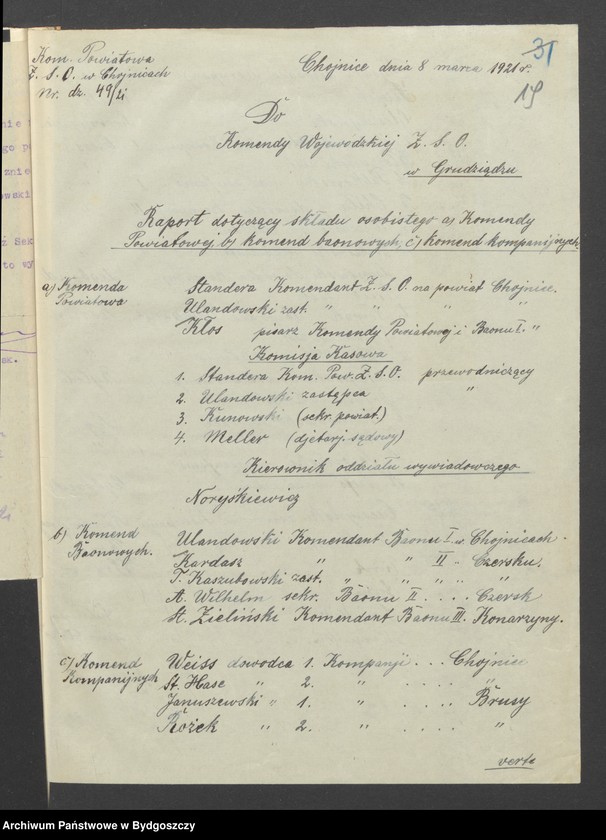 Kom. Powiatowa
Z. S. O. w Chojnicach
Nr. dz. 49/21
Chojnice dnia 8 marca 1921 r.
31
19
Do
Komendy Wojewodzkiej Z. S. O.
w Grudziądzu
Raport dotyczący składu osobistego a) Komendy
Powiatowej, b) komend baonowych, c) komend kompanijnych.
a) Komenda
Powiatowa
Standera Komendant Z. S. O. na powiat Chojnice.
Ulandowski zast. " " " "
Kłos pisarz Komendy Powiatowej i Baonu I. "
Komisja Kasowa
1. Standera Kom. Pow. Z. S. O. przewodniczący
2. Ulandowski zastępca "
3. Kunowski (sekr. powiat.)
4. Meller (djetarj. sądowy)
Kierownik oddziału wywiadowczego
Noryśkiewicz
b) Komend
Baonowych.
Ulandowski Komendant Baonu I w Chojnicach.
Kardasz " " II " Czersku.
T. Kaszubowski zast. " " " "
A. Wilhelm sekr. Baonu II . . . . Czersk
St. Zieliński Komendant Baonu III. Konarzyny.
c) Komend
Kompanijnych
Weiss dowodca 1. Kompanji . . . Chojnice
St. Hase " 2. " . . . . "
Januszewski " 1. " . . . . Brusy
Rożek " 2. " . . . . "
verte
Archiwum Państwowe w Bydgoszczy